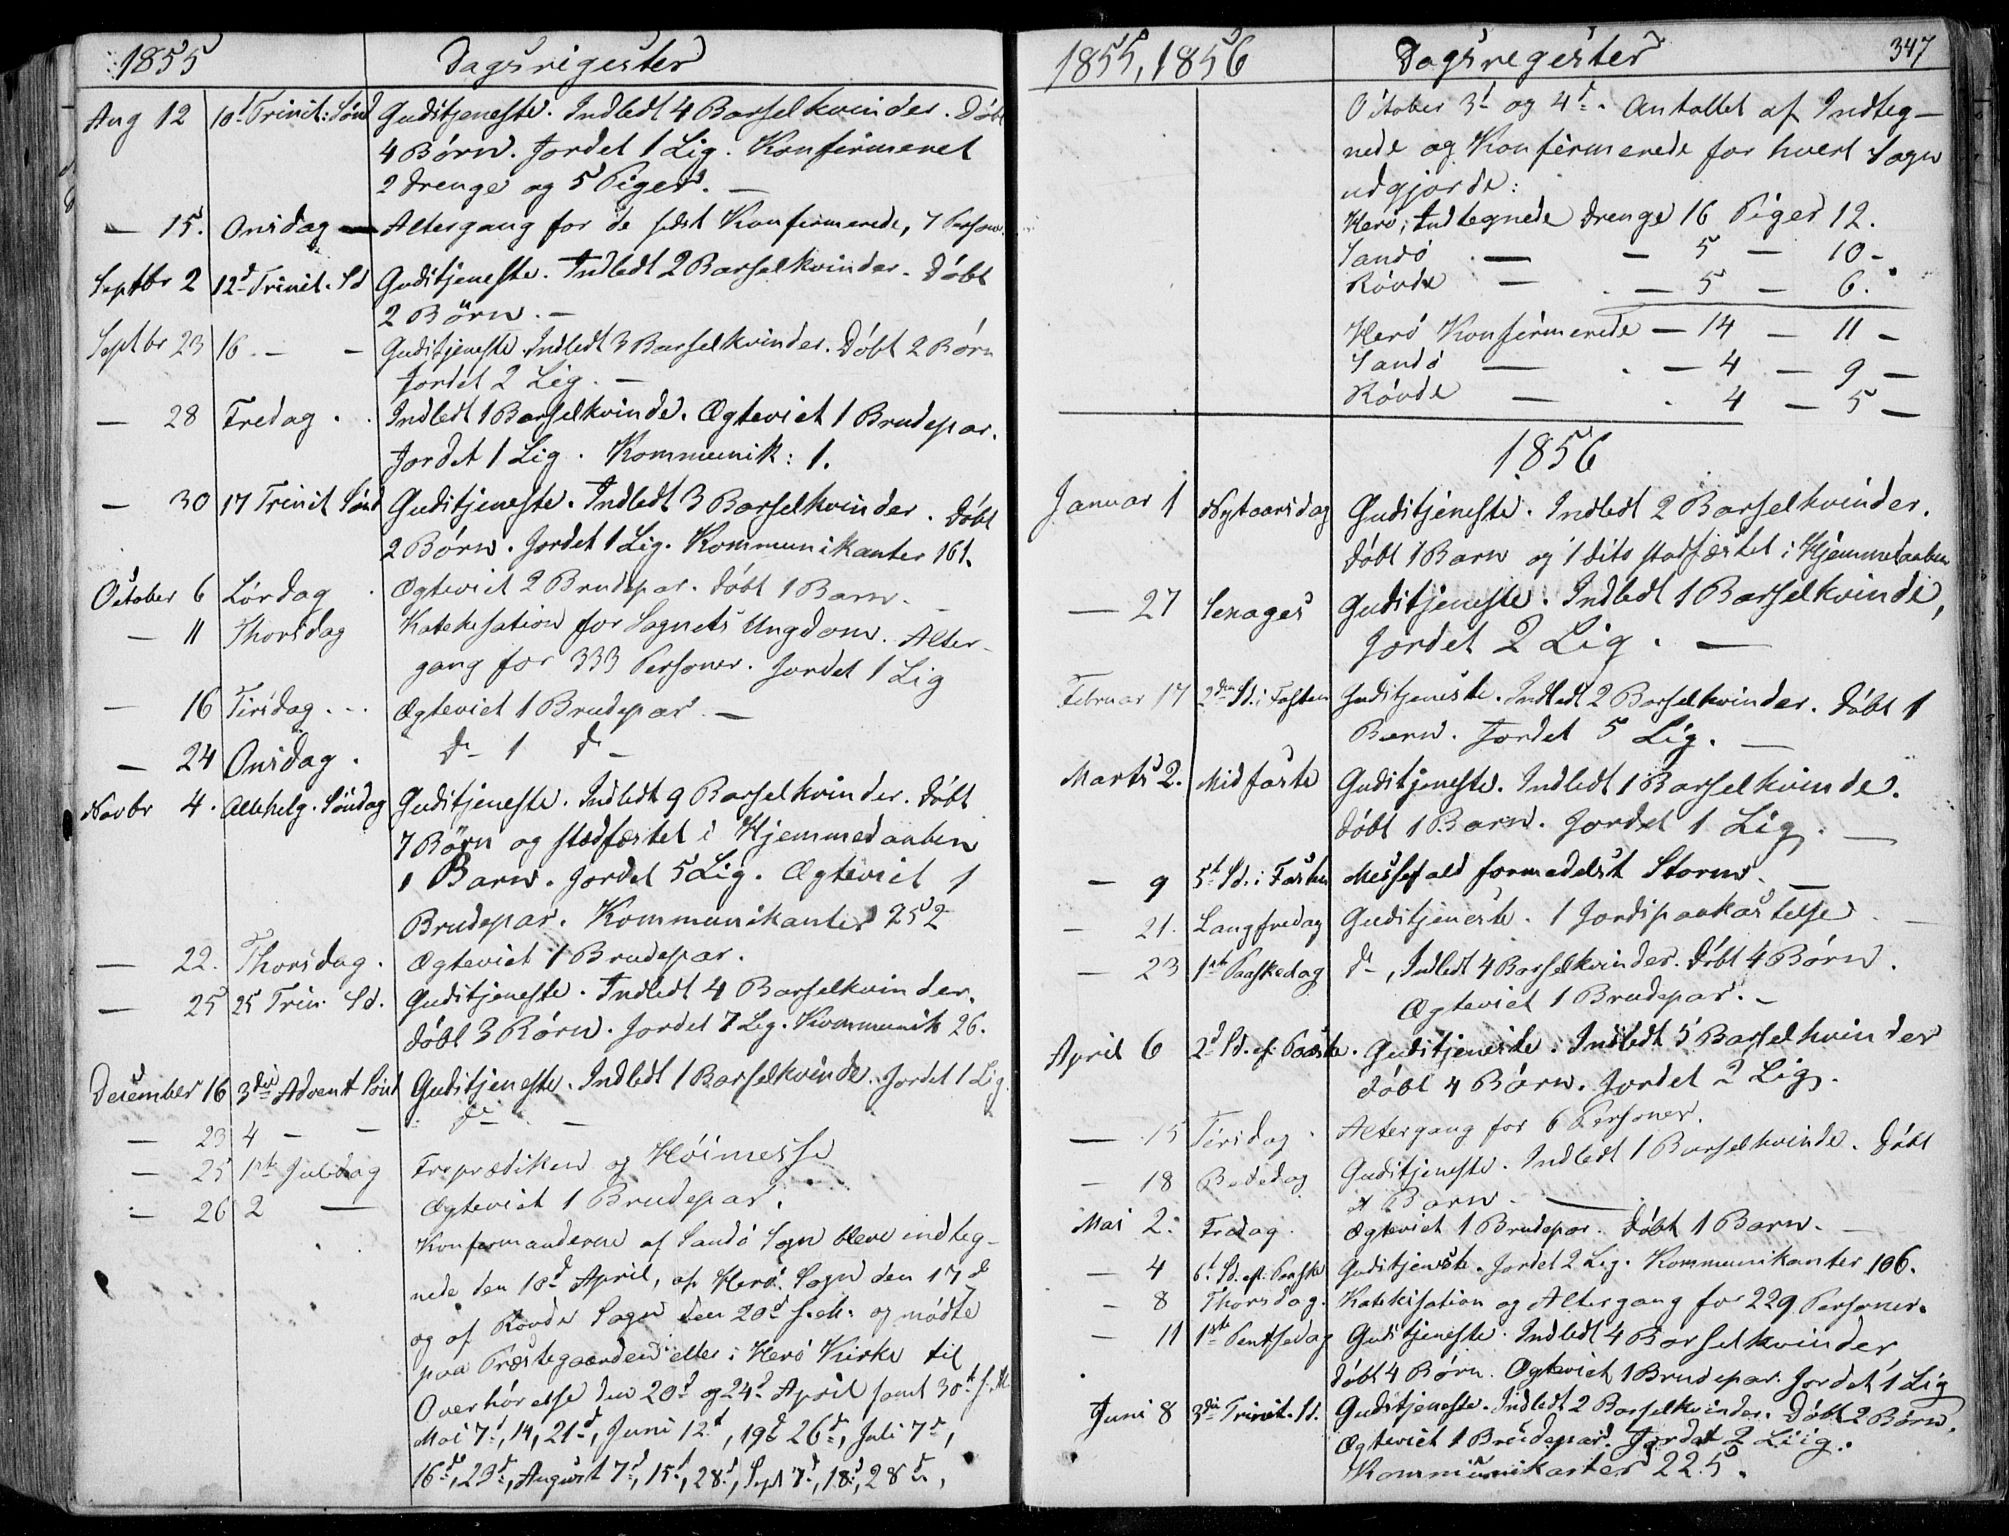 1855 Dagsregister
Aug 12 10d Trinit: Sönd Gudstjeneste. Indledt 4 Barselkvinder. Döbt
4 Börn. Jordet 1 Lig. Konfirmeret
2 Drenge og 5 Piger. —
— 15. Onsdag — Altergang for de sidst Konfirmerede, 7 Person.
Septbr 2 12d Trinit. Sd Gudstjeneste. Indledt 2 Barselkvinder. Döbt
2 Börn. —
Septbr 23 16 — — Gudstjeneste. Indledt 3 Barselkvinder. Döbt 2 Börn
Jordet 2 Lig. —
— 28 Fredag . . Indledt 1 Barselkvinde. Ægteviet 1 Brudepar.
Jordet 1 Lig. Kommunik: 1.
— 30 17 Trinit Sönd Gudstjeneste. Indledt 3 Barselkvinder. Döbt
2 Börn. Jordet 1 Lig. Kommunikanter 161.
October 6 Lördag . Ægteviet 2 Brudepar. Döbt 1 Barn. —
— 11 Thorsdag Katekisation for Sognets Ungdom. Alter-
gang for 333 Personer. Jordet 1 Lig
— 16 Tirsdag . . . Ægteviet 1 Brudepar. —
— 24 Onsdag . d— 1 d—
Novbr 4. Allehelg. Söndag Gudstjeneste. Indledt 9 Barselkvinder. Döbt
7 Börn og stadfæstet i Hjemmedaaben
1 Barn. Jordet 5 Lig. Ægteviet 1
Brudepar. Kommunikanter 252
— 22. Thorsdag. Ægteviet 1 Brudepar.
— 25 25 Trin. Sd. Gudstjeneste. Indledt 4 Barselkvinder.
Döbt 3 Börn. Jordet 7 Lig. Kommunik 26.
December 16 3die Advent Sönd Gudstjeneste. Indledt 1 Barselkvinde. Jordet 1 Lig.
— 23 4 — — d— —
— 25 1ste Juledag Froprædiken og Höimesse
— 26 2 — Ægteviet 1 Brudepar.
Konfirmanderne af Sandö Sogn bleve indteg-
nede den 18d April, af Herö Sogn den 17d
og af Rövde Sogn den 20d s. M. og mödte
paa Præstegaarden eller i Herö Kirke til
Overhörelse den 20d og 24d April samt 30t s. M
Mai 7d, 14, 21d, Juni 12d, 19d 26d, Juli 7d,
16d, 23d, August 7d, 15d, 28d, Sept 7d, 18d, 28d,
1855, 1856 Dagsregester 347
October 3d og 4d. Antallet af Indteg-
nede og Konfirmerede for hvert Sogn
udgjorde:
Herö, Indtegnede Drenge 16 Piger 12.
Sandö — — 5 — 10 —
Rövde — — 5 — 6.
Herö Konfirmerede — 14 — 11 —
Sandö — — 4 — 9 —
Rövde — 4 — 5 —
1856
Januar 1 Nytaarsdag Gudstjeneste. Indledt 2 Barselkvinder.
Döbt 1 Barn og 1 dito stadfæstet i Hjemmedaaben
— 27 Sexages Gudstjeneste. Indledt 1 Barselkvinde,
Jordet 2 Lig. —
Februar 17 2den Sd. i Fasten Gudstjeneste. Indledt 2 Barselkvinder. Döbt 1
Barn. Jordet 5 Lig. —
Marts 2. Midfaste Gudstjeneste. Indledt 1 Barselkvinde.
Döbt 1 Barn. Jordet 1 Lig. —
— 9 5t Sd. i Fasten Messefald formedelst Storm. —
— 21. Langfredag Gudstjeneste. 1 Jordspaakastelse. —
— 23 1ste Paaskedag d—, Indledt 4 Barselkvinder. Döbt 4 Börn.
Ægteviet 1 Brudepar. —
April 6 2d Sd. ef. Paaske. Gudstjeneste. Indledt 5 Barselkvinder
Döbt 4 Börn. Jordet 2 Lig.
— 15 Tirsdag . Altergang for 6 Personer.
— 18 Bededag Gudstjeneste. Indledt 1 Barselkvinde. Döbt
1 Barn. —
Mai 2. Fredag. Ægteviet 1 Brudepar. Döbt 1 Barn. —
— 4 6t Sd. eft. Paaske Gudstjeneste. Jordet 2 Lig. Kommunikanter 106.
— 8 Thorsdag. Katekisation og Altergang for 229 Personer.
— 11 1ste Pentsedag Gudstjeneste. Indledt 4 Barselkvinder
Döbt 4 Börn. Ægteviet 1 Brudepar. Jordet 1 Lig
Juni 8 3die Trinit. Sd. Gudstjeneste. Indledt 2 Barselkvinder. Döbt 2 Börn.
Ægteviet 1 Brudepar. Jordet 2 Liig.
Kommunikanter 225.